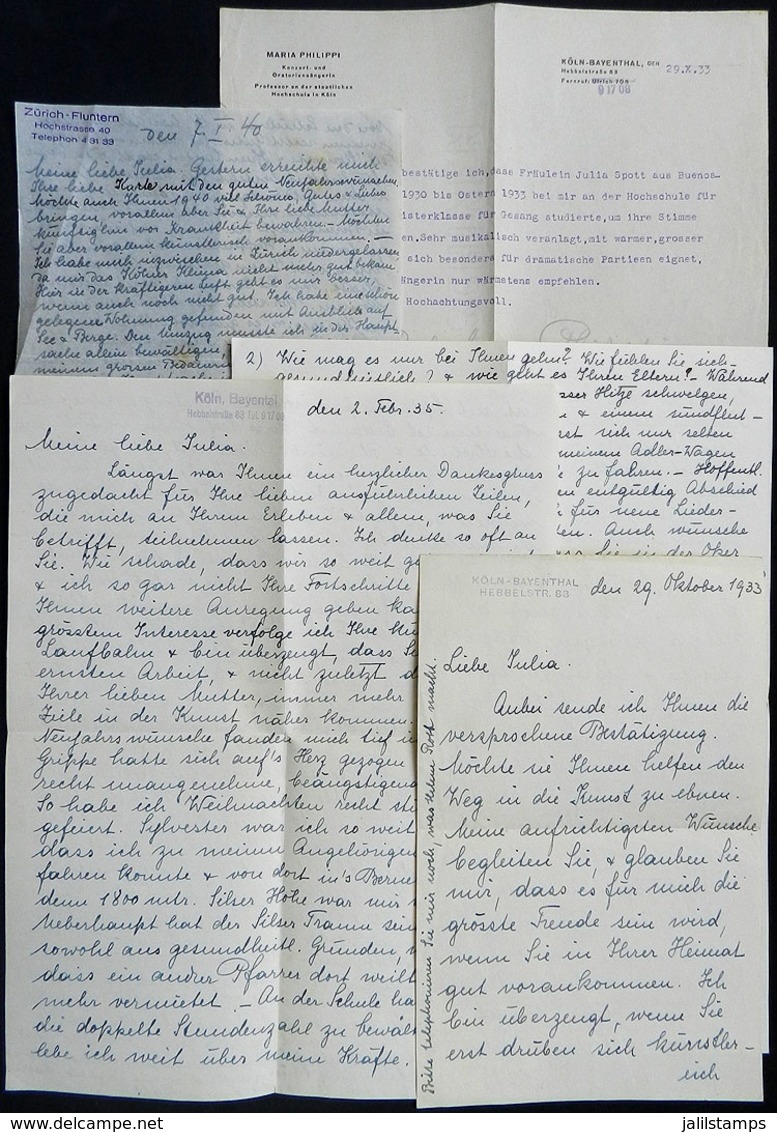 MARIA PHILIPPI
Konzert- und
Oratoriensängerin
Professor an der staatlichen
Hochschule in Köln
KÖLN-BAYENTHAL, DEN 29.X.33
Hebbelstraße 83
Fernruf: Ulrich 708
91708
bestätige ich,dass Fräulein Julia Spott aus Buenos-
1930 bis Ostern 1933 bei mir an der Hochschule für
isterklasse für Gesang studierte,um ihre Stimme
en.Sehr musikalisch veranlagt,mit warmer,grosser
sich besonders für dramatische Partieen eignet,
ngerin nur wärmstens empfehlen.
Hochachtungsvoll.
Zürich-Fluntern
Hochstrasse 40
Telephon 4 31 33
den 7. I 40
Meine liebe Julia. Gestern erreichte mich
Ihre liebe Karte mit den guten Neujahrswünschen.
Möchte auch Ihnen 1940 viel Schönes, Gutes & Liebes
bringen, vorallem aber Sie & Ihre liebe Mutter
künftighin vor Krankheit bewahren. – Möchten
Sie aber vorallem künstlerisch vorankommen. –
Ich habe mich inzwischen in Zürich niedergelassen
da mir das Kölner Klima nicht mehr gut bekam
Hier in der kräftigeren Luft geht es mir besser,
wenn auch noch nicht gut. Ich habe eine schön
gelegene Wohnung gefunden mit Ausblick auf
See & Berge. Den Umzug musste ich in der Haupt-
sache allein bewältigen,
meinem grossen Bedauern
2) Wie mag es nur bei Ihnen gehn? Wie fühlen Sie sich
gesundheitlich? & wie geht es Ihren Eltern? – Während
sser Hitze schwelgen,
& einem sündflut-
rst sich nur selten
meinem Adler-Wagen
zu fahren. – Hoffentl.
en entgültig Abschied
für neue Lieder-
en. Auch wünsche
Sie in der Oper
Köln, Bayental
Hebbelstraße 83 Tel. 9 17 08
den 2. Febr. 35.
Meine liebe Julia.
Längst war Ihnen ein herzlicher Dankesgruss
zugedacht für Ihre lieben ausführlichen Zeilen,
die mich an Ihrem Erleben & allem, was Sie
betrifft, teilnehmen lassen. Ich denke so oft an
Sie. Wie schade, dass wir so weit
& ich so gar nicht Ihre Fortschritte
Ihnen weitere Anregung geben
grösstem Interesse verfolge ich Ihre
Laufbahn & bin überzeugt, dass
ernsten Arbeit, & nicht zuletzt
Ihrer lieben Mutter, immer mehr
Ziele in der Kunst näher kommen.
Neujahrswünsche fanden mich tief
Grippe hatte sich auf's Herz gezogen
recht unangenehme, beängstigend
So habe ich Weihnachten recht
gefeiert. Sylvester war ich so weit
dass ich zu meinen Angehörigen
fahren konnte & von dort in's Berne
denn 1800 mtr. Silser Höhe war mir
Ueberhaupt hat der Silser Traum sein
sowohl aus gesundheitl. Gründen,
dass ein andrer Pfarrer dort weilt
mehr vermietet. – An der Schule ha
die doppelte Stundenzahl zu bewäl
lebe ich weit über meine Kräfte.
KÖLN-BAYENTHAL
HEBBELSTR. 83
den 29. Oktober 1933
Liebe Julia.
Anbei sende ich Ihnen die
versprochene Bestätigung.
Möchte sie Ihnen helfen den
Weg in die Kunst zu ebnen.
Meine aufrichtigsten Wünsche
begleiten Sie, & glauben Sie
mir, dass es für mich die
grösste Freude sein wird,
wenn Sie in Ihrer Heimat
gut vorankommen. Ich
bin überzeugt, wenn Sie
erst drüben sich künstler-
isch
Bitte telephonieren Sie mir noch, was Helene Rott macht.
delcampe.net
jalilstamps